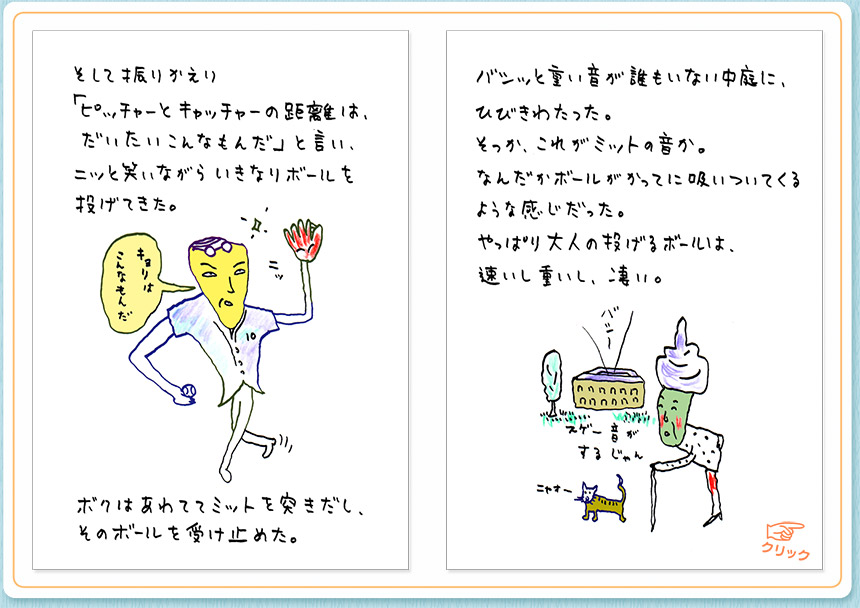 そして振りかえり
「ピッチャーとキャッチャーの距離は、
だいたいこんなもんだ」と言い、
ニッと笑いながらいきなりボールを
投げてきた。
キョリは
こんなもんだ
ニッ
10
ボクはあわててミットを突きだし、
そのボールを受け止めた。
バシッと重い音が誰もいない中庭に、
ひびきわたった。
そっか、これがミットの音か。
なんだかボールがかってに吸いついてくる
ような感じだった。
やっぱり大人の投げるボールは、
速いし重いし、凄い。
バシー
スゲー音が
するじゃん
ニャオー
クリック